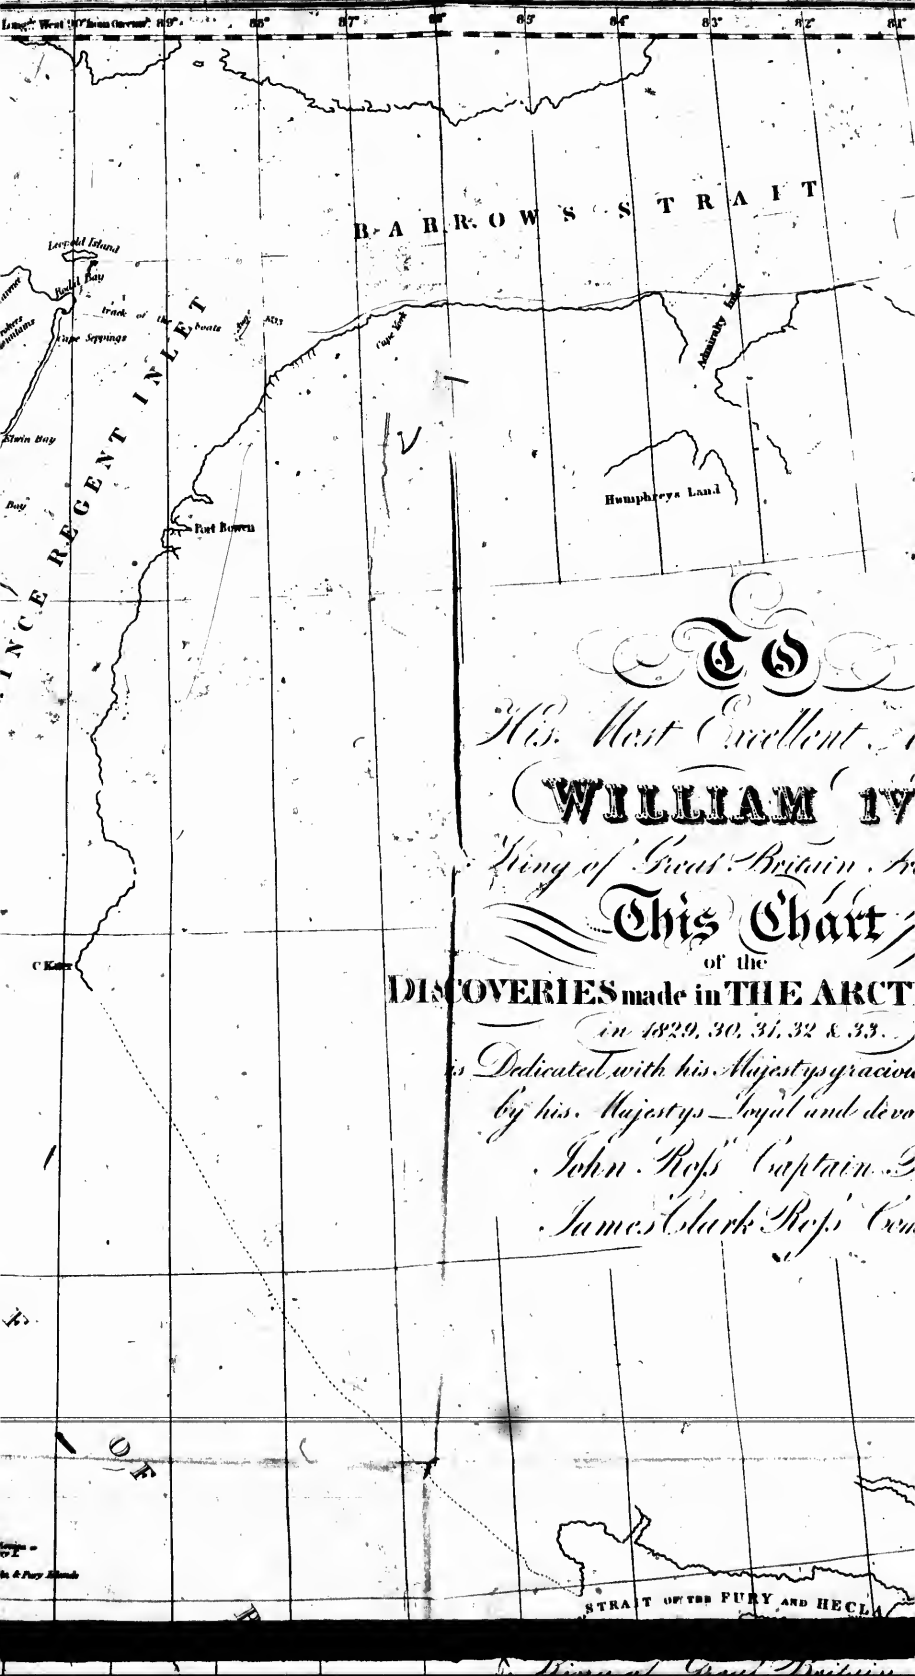 Long. West 90° from Greenw. 89° 88° 87° 86° 85° 84° 83° 82° 81°
BARROWS STRAIT
Leopold Island
Bay
track of the boats
Cape Seppings
Cape York
Admiralty Inlet
Elwin Bay
Bay
INCE REGENT INLET
Humphreys Land
Port Bowen
TO
His Most Excellent
WILLIAM IV
King of Great Britain
This Chart
of the
DISCOVERIES made in THE ARCT
in 1829, 30, 31, 32 & 33.
is Dedicated with his Majestys graciou
by his Majestys Loyal and devo
John Ross Captain
James Clark Ross Com
C Kater
OF
& Fury Islands
STRAIT OF THE FURY AND HECLA
King of Great Britain